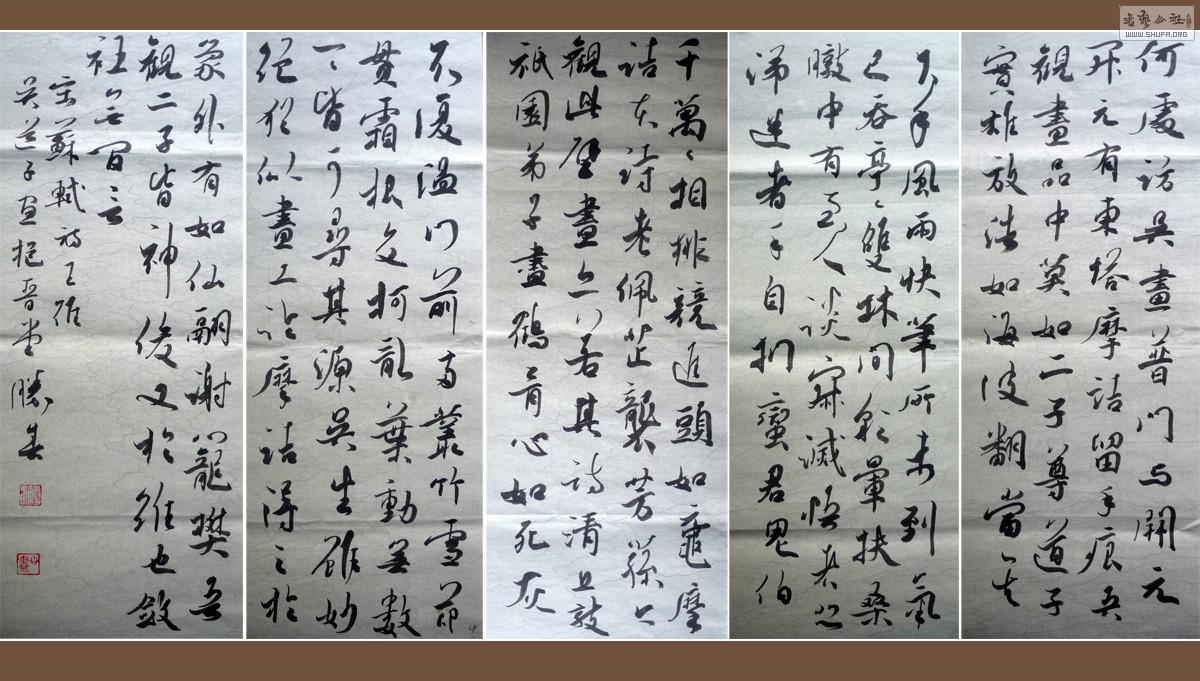 何處訪吳畫普門与開元
開元有東塔摩詰留手痕吾
觀畫品中莫如二子尊道子
實雄放浩如海波翻當其
下手風雨快筆所未到氣
已吞亭〻雙林間彩暈扶桑
暾中有至人談寂滅悟者悲
涕迷者手自捫蠻君鬼伯
千萬〻相排競進頭如黿摩
詰本詩老佩芷襲芳蓀今
觀此壁畫亦若其詩清且敦
祇園弟子盡鶴骨心如死灰
不復溫門前兩叢竹雪節
貫霜根交柯亂葉動無數
一一皆可尋其源吳生雖妙
絕猶以畫工論摩詰得之於
象外有如仙翮謝籠樊吾
觀二子皆神俊又於維也斂
衽無間言
宋蘇軾詩王維
吳道子畫挹晉堂勝春
WWW.SHUFA.ORG